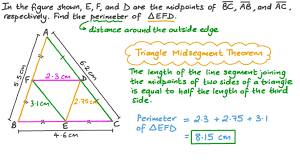 In the figure shown, E, F, and D are the midpoints of BC, AB, and AC,
respectively. Find the perimeter of △EFD.
distance around the outside edge
Triangle Midsegment Theorem
The length of the line segment joining
the midpoints of two sides of a triangle
is equal to half the length of the third
side.
A
5.5 cm
6.2 cm
F
2.3 cm
D
3.1 cm
2.75 cm
B
E
C
4.6 cm
Perimeter = 2.3 + 2.75 + 3.1
of △EFD
= 8.15 cm